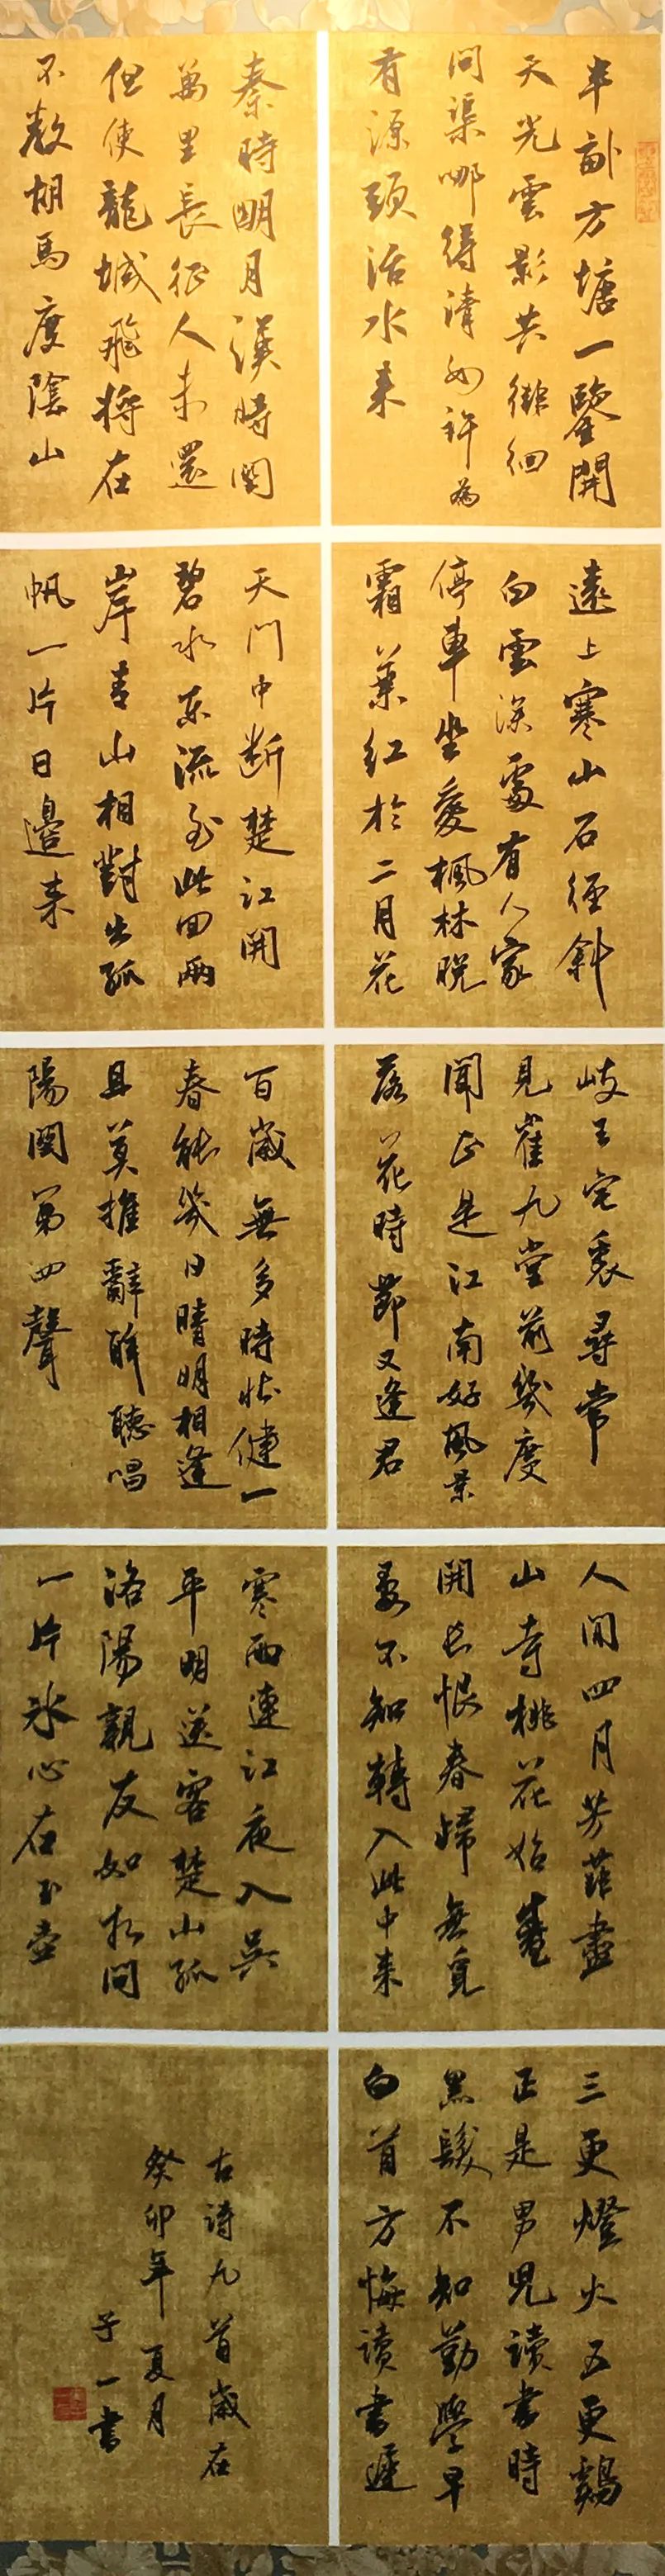 半畝方塘一鑒開
天光雲影共徘徊
問渠哪得清如許為
有源頭活水來
遠上寒山石徑斜
白雲深處有人家
停車坐愛楓林晚
霜葉紅於二月花
岐王宅裏尋常
見崔九堂前幾度
聞正是江南好風景
落花時節又逢君
人間四月芳菲盡
山寺桃花始盛
開長恨春歸無覓
處不知轉入此中來
三更燈火五更鷄
正是男兒讀書時
黑髮不知勤學早
白首方悔讀書遲
秦時明月漢時關
萬里長征人未還
但使龍城飛將在
不教胡馬度陰山
天門中斷楚江開
碧水東流至此回兩
岸青山相對出孤
帆一片日邊來
百歲無多時壯健一
春能幾日晴明相逢
且莫推辭醉聽唱
陽關第四聲
寒雨連江夜入吳
平明送客楚山孤
洛陽親友如相問
一片冰心在玉壺
古詩九首歲在
癸卯年夏月
子一書